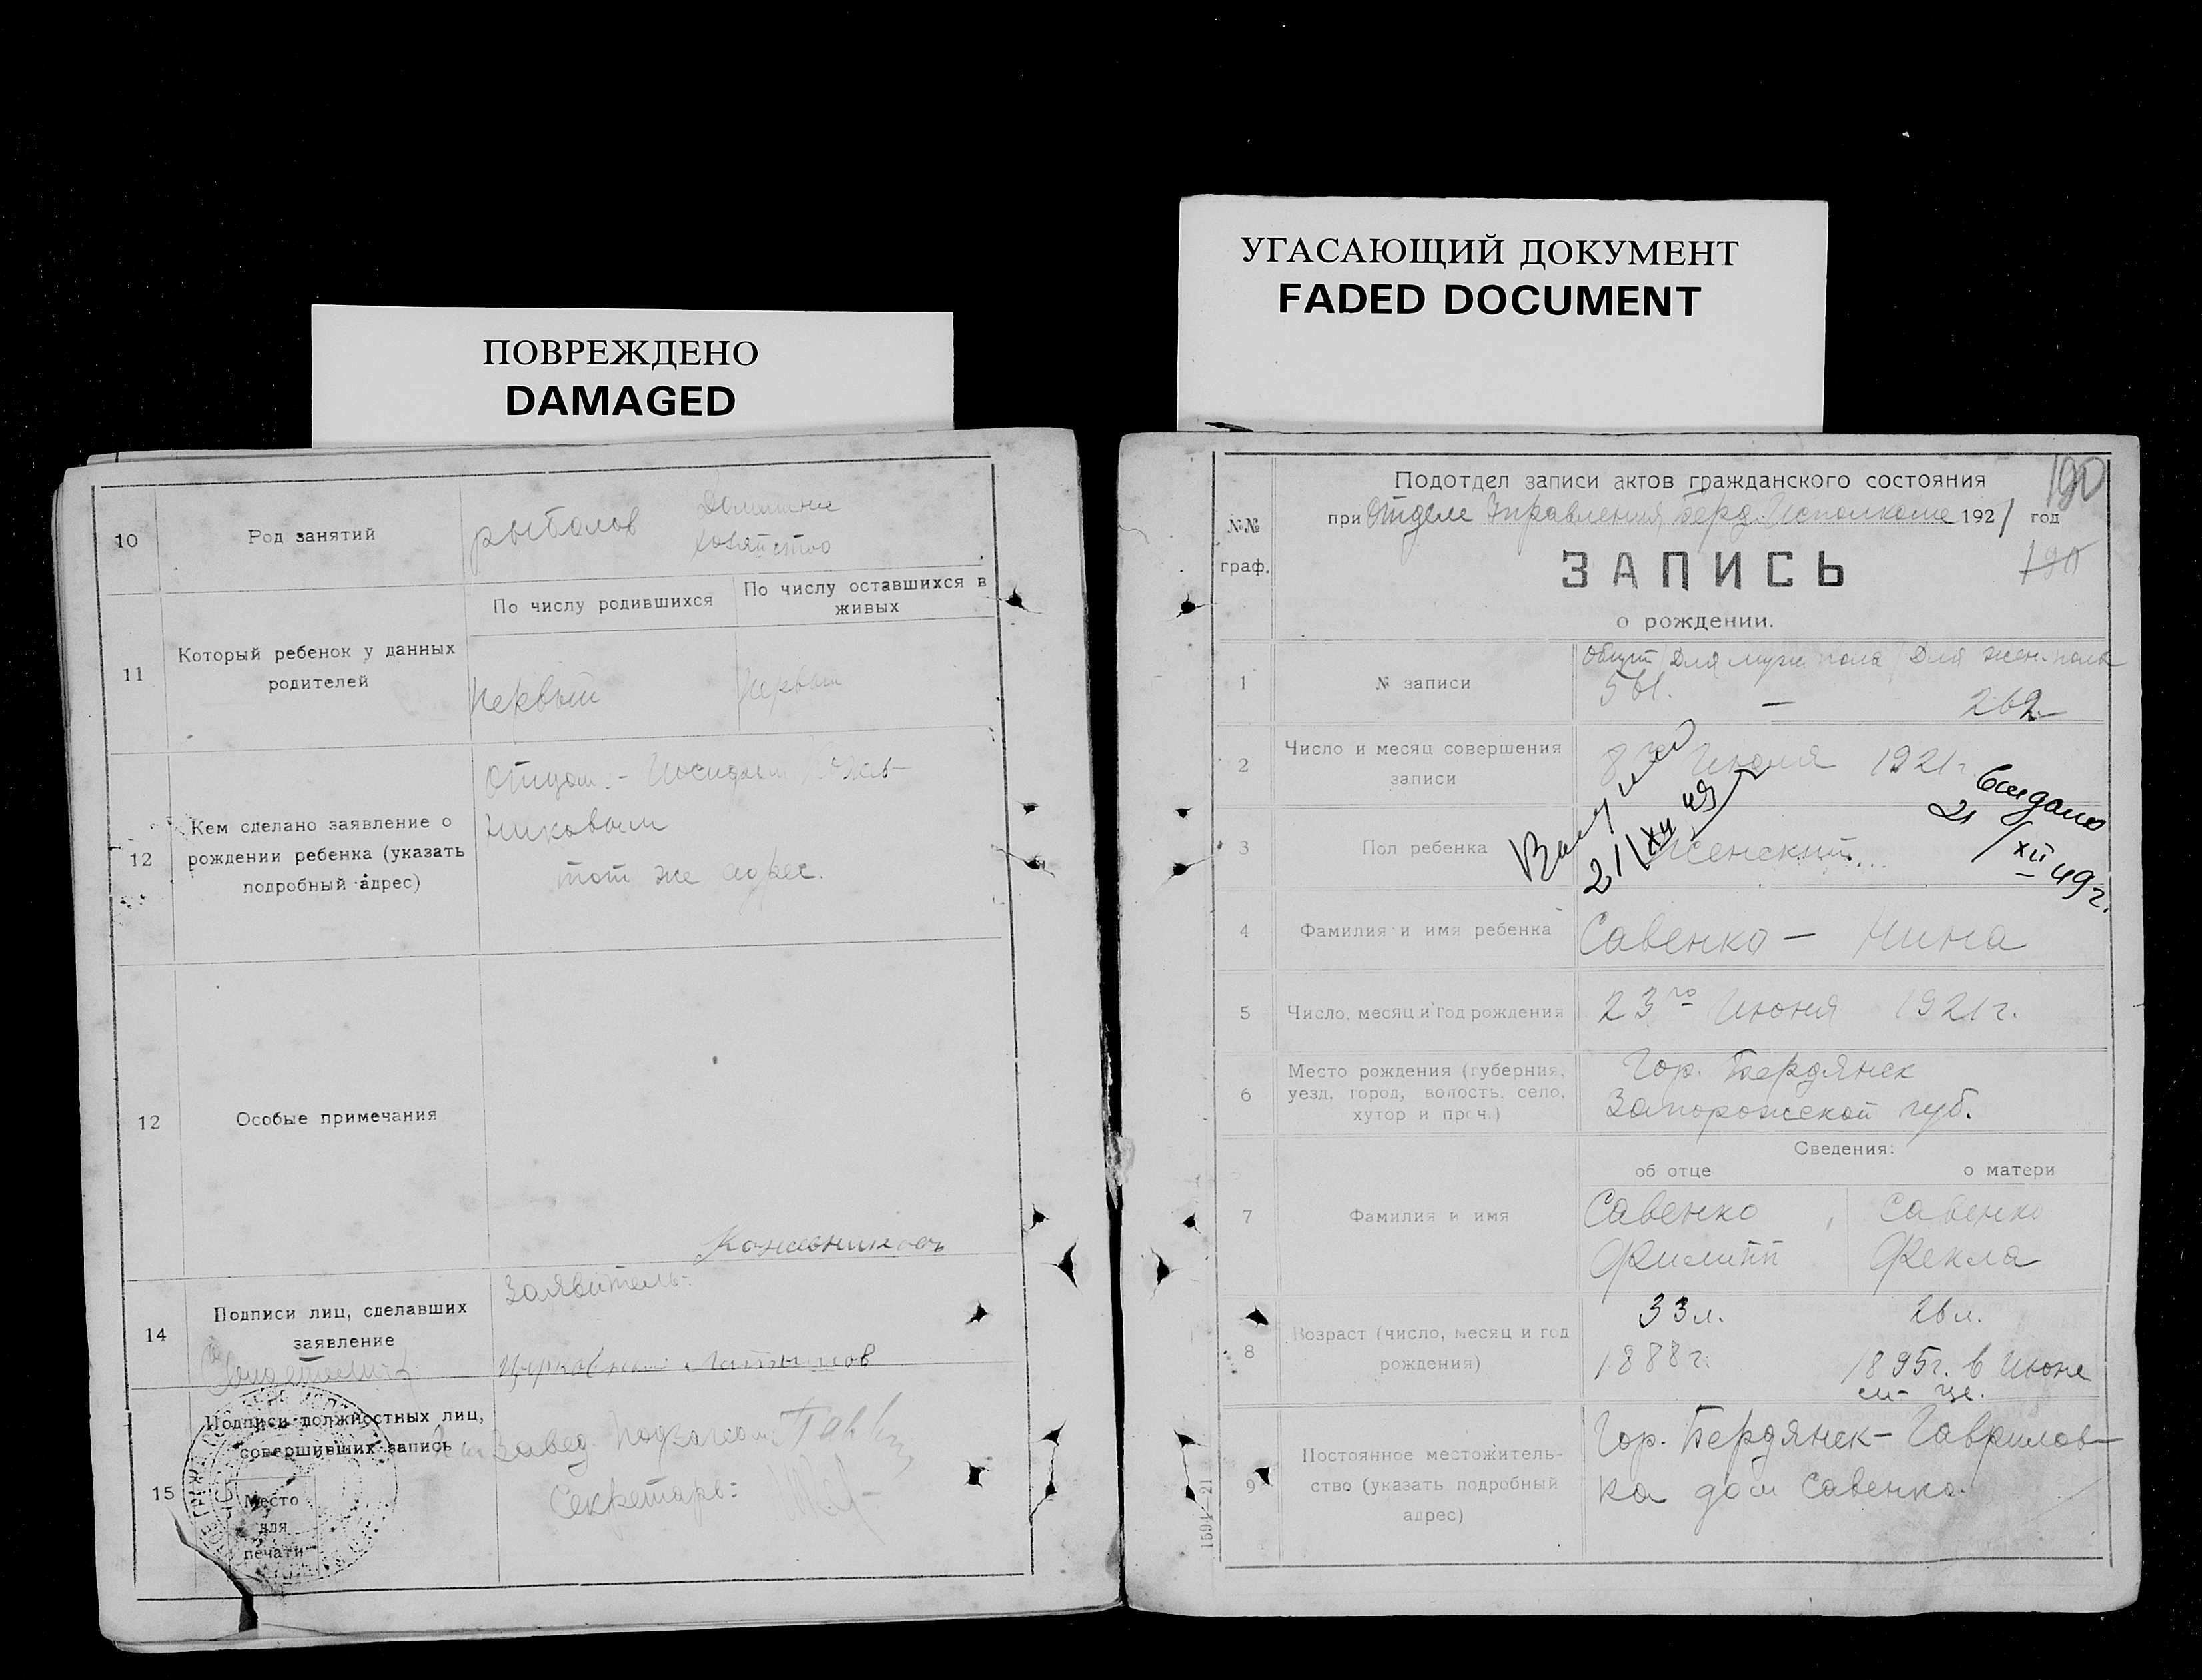 ПОВРЕЖДЕНО
DAMAGED
10
Род занятий
рыболов
Домашнее
хозяйство
11
Который ребенок у данных
родителей
По числу родившихся
По числу оставшихся в
живых
Первый
Первый
12
Кем сделано заявление о
рождении ребенка (указать
подробный адрес)
Отцом:- Иосифом Кожев-
никовым
тот же адрес.
12
Особые примечания
Кожевников
14
Подписи лиц, сделавших
заявление
Заявитель:
15
Подписи должностных лиц,
совершивших запись
Место
для
печати
Завед.
Секретарь:
УГАСАЮЩИЙ ДОКУМЕНТ
FADED DOCUMENT
190
№№
граф.
Подотдел записи актов гражданского состояния
при Отделе Управления Берд. Исполкома 1921 год
190
ЗАПИСЬ
о рождении.
1
№ записи
Общий Для муж. пола Для жен. пола
561. — 262
2
Число и месяц совершения
записи
8го Июля 1921г
Выдано
21/XII 49г.
21/XII 49
3
Пол ребенка
Женский...
4
Фамилия и имя ребенка
Савенко — Нина
5
Число, месяц и год рождения
23го Июня 1921г.
6
Место рождения (губерния,
уезд, город, волость, село,
хутор и проч.)
Гор. Бердянск
Запорожской губ.
Сведения:
об отце
о матери
7
Фамилия и имя
Савенко
Филипп
Савенко
Фекла
8
Возраст (число, месяц и год
рождения)
33л.
1888г.
26л.
1895г. в Июне
м-це.
9
Постоянное местожитель-
ство (указать подробный
адрес)
Гор. Бердянск-Гаврилов-
ка дом Савенко.
1594—21